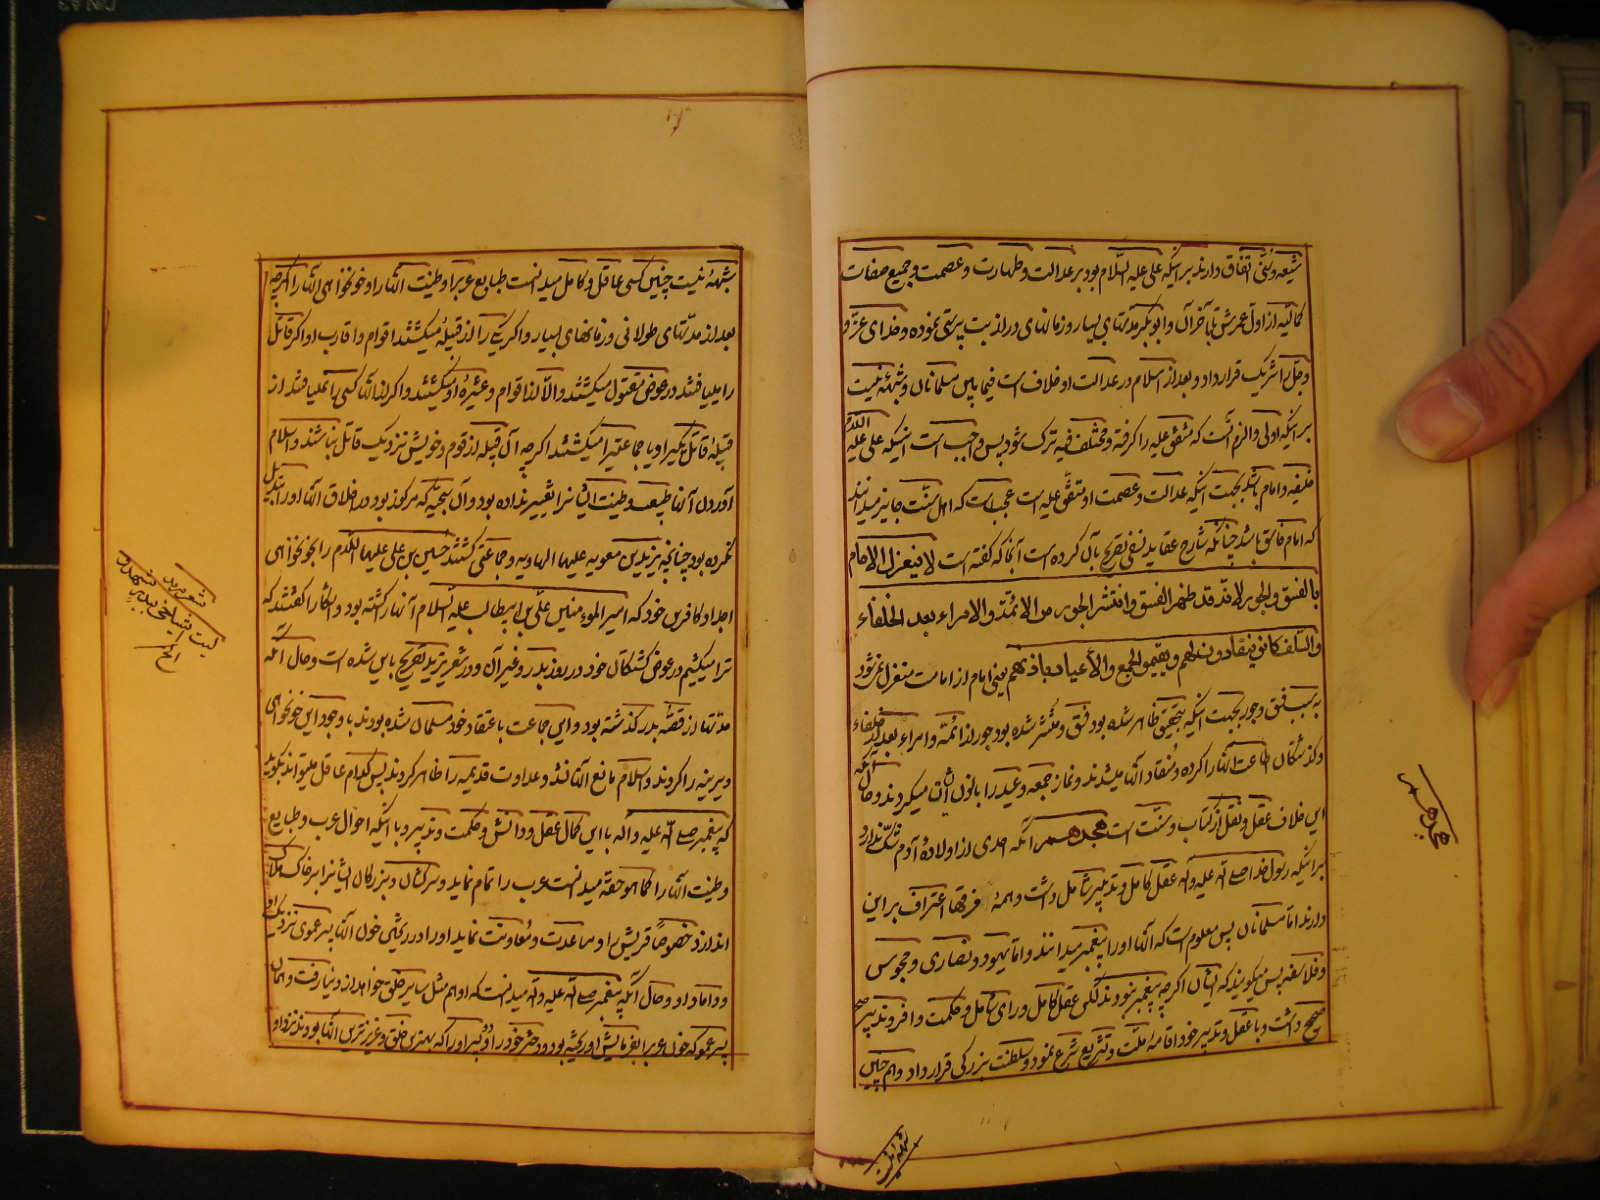 شیعه و سنّی اتفاق دارند بر اینکه علی علیه السّلام بود بر عدالت و طهارت و عصمت و جمیع صفات
کمالیه از اول عمرش تا بآخر آن و ابو بکر مدتهای بسیار و زمانهای دراز بت پرستی نموده و خدای عزّ و
جلّ را شریک قرار داد و بعد از اسلام در عدالت او خلاف است فیما بین مسلمانان و شبهه نیست
بر اینکه اولی و الزم آنست که متفق علیه را گرفته و مختلف فیه ترک شود پس واجب است اینکه علی علیه السّلام
خلیفه و امام باشد بجهت اینکه عدالت و عصمت او متفق علیه است عجب است که اهل سنّت جایز میدانند
که امام فاسق باشد چنانکه شارح عقاید نسفی تصریح بآن کرده است آنجا که گفته است لا ینعزل الامام
بالفسق و الجور لانه قد ظهر الفسق و انتشر الجور من الائمّة و الامراء بعد الخلفاء
و السّلف کانوا ینقادون لهم و یقیمون الجمع و الأعیاد باذنهم یعنی امام از امامت منعزل نمیشود
به سبب فسق و جور بجهت اینکه بتحقیق ظاهر شده بود فسق و منتشر شده بود جور از ائمّه و امراء بعد از خلفاء
و گذشتگان اطاعت آنها را کرده و منقاد آنها میشدند و نماز جمعه و عید را باذن ایشان میکردند و حال آنکه
این خلاف عقل و نقل از کتاب و سنّت است هجدهم آنکه احدی از اولاد آدم شک ندارد
بر اینکه رسول خدا صلی الله علیه و آله عقل کامل و تدبیر شامل داشت و همه فرقها اعتراف بر این
دارند امّا مسلمانان پس معلوم است که آنها او را پیغمبر میدانند و امّا یهود و نصاری و مجوس
و فلاسفه پس میگویند که ایشان اگر چه پیغمبر نبودند لکن عقل کامل و رای شامل و حکمت وافر و تدبیر صحیح
صحیح داشت و با عقل و تدبیر خود اقامه ملّت و تشریع شرع نمود و سلطنت بزرگی قرار داد و هم چنین
هجدهم
شبهه نیست
شبهه نیست چنین کسی عاقل و کامل میدانست طبایع عرب و طینت آنها را و خونخواهی آنها را اگر چه
بعد از مدّتهای طولانی و زمانهای بسیار و اگر یکی را از قبیله میکشتند اقوام و اقارب او اگر قاتل
را مییافتند در عوض مقتول میکشتند و الّا از اقوام و عشیره او میکشتند و اگر از آنها کسی را نمییافتند از
قبیله قاتل یکنفر و یا جماعتیرا میکشتند اگر چه آن قبیله از قوم و خویش نزدیک قاتل نباشند و اسلام
آوردن آنها طبیعت و طینت ایشانرا تغییر نداده بود و آن سجیّه که مرکوز بود در اخلاق آنها او را تبدیل
نکرده بود چنانچه یزید بن معویه علیهما الهاویه و جماعتی کشتند حسین بن علی علیهما السّلام را بخونخواهی
اجداد کافرین خود که امیر المؤمنین علیّ بن ابیطالب علیه السّلام آنها را کشته بود و آشکارا گفتند که
ترا میکشیم در عوض کشتگان خود در روز بدر و غیر آن و در شعر یزید تصریح باین شده است و حال آنکه
مدّتها از قصّه بدر گذشته بود و این جماعت باعتقاد خود مسلمان شده بودند با وجود این خونخواهی
دیرینه را کردند و اسلام مانع آنها نشد و عداوت قدیمه را ظاهر کردند پس کدام عاقل میتواند بگوید
که پیغمبر صلی الله علیه و آله با این کمال عقل و دانش و حکمت و تدبیر و با اینکه احوال عرب و طبایع
و طینت آنها را کما هو حقه میدانست عرب را تمام نماید و سرکشان و بزرگان ایشانرا بر خاک هلاک
اندازد خصوصًا قریش را و مساعدت و معاونت نماید او را در ریختن خون آنها پسر عموی نزدیک او
و داماد او و حال آنکه پیغمبر صلی الله علیه و آله میدانست که او هم مثل سایر خلق خواهد از دنیا رفت و همان
پسر عمو که خون عرب را بفرمایش او ریخته بود و دختر خود را و دو پسر او را که بهترین خلق و عزیزترین آنها بودند نزد او
شعر یزید
لیت اشیاخی ببدر شهدوا
الخ